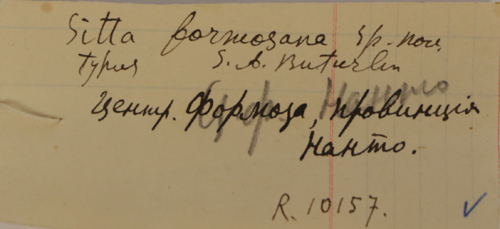 Sitta formosana sp. nov.
typus S. A. Buturlin
Центр. Формоза, провинцiя
Нанто.
R. 10157.